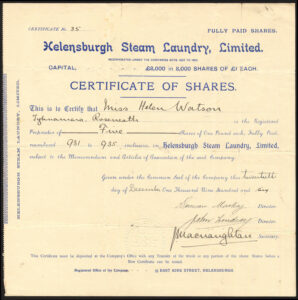 CERTIFICATE No 35
FULLY PAID SHARES.
Helensburgh Steam Laundry, Limited.
INCORPORATED UNDER THE COMPANIES ACTS 1862 TO 1900
CAPITAL, £8,000 IN 8,000 SHARES OF £1 EACH.
CERTIFICATE OF SHARES.
This is to Certify that Miss Helen Watson
Rosneath is the Registered
Proprietor of Five Shares of One Pound each, Fully Paid,
numbered 931 to 935 inclusive, in Helensburgh Steam Laundry, Limited,
subject to the Memorandum and Articles of Association of the said Company.
Given under the Common Seal of the Company this twentieth
day of December One Thousand Nine Hundred and six
Director.
John Director.
J Macnaughtan Secretary.
This Certificate must be deposited at the Company's Office with any Transfer of the whole or any portion of the above Shares before a
New Certificate can be issued.
Registered Office of the Company: 15 EAST KING STREET, HELENSBURGH.
HELENSBURGH STEAM LAUNDRY, LIMITED.